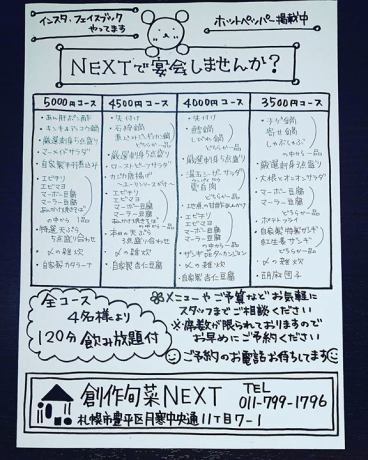 インスタ、フェイスブック
やってます
ホットペッパー掲載中
NEXTで宴会しませんか?
5000円コース
・あん肝ポン酢
・キンキ&アンコウ鍋
・厳選刺身5点盛り
・エビチリ
エビマヨ
マーボー豆腐
マーラー豆腐
の中から一品
5点盛り合わせ
・〆の雑炊
・自家製カタラーナ
4500円コース
・お付け
・石狩鍋
どちらか一品
・厳選刺身5点盛り
・ローストビーフサラダ
・エビチリ
エビマヨ
マーボー豆腐
マーラー豆腐
の中から一品
3点盛り合わせ
・〆の雑炊
・自家製杏仁豆腐
4000円コース
・お付け
どちらか一品
・厳選刺身5点盛り
・温玉シーザーサラダ
どちらか一品
・エビチリ
エビマヨ
マーボー豆腐
マーラー豆腐
の中から一品
・〆の雑炊
・自家製杏仁豆腐
3500円コース
寄せ鍋
しゃぶしゃぶ
の中から一品
・厳選刺身3点盛り
・大根とオニオンサラダ
・マーボー豆腐
マーラー豆腐
どちらか一品
・ポテトフライ
・自家製特製ザンギ
紅生姜ザンギ
どちらか一品
・〆の雑炊
・胡麻団子
全コース
4名様より
120分飲み放題付
メニューやご予算などお気軽に
スタッフまでご相談ください
※席数が限られておりますので
お早めにご予約ください
ご予約のお電話お待ちしてます
創作旬菜NEXT
TEL
011-799-1796
札幌市豊平区月寒中央通11丁目7-1